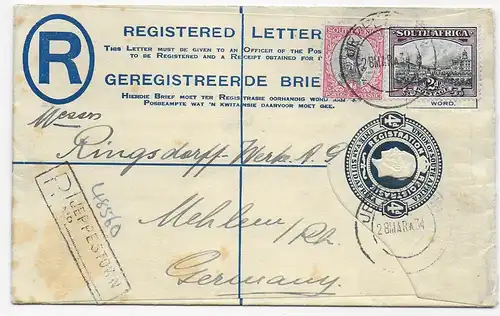 R
REGISTERED LETTER
THIS LETTER MUST BE GIVEN TO AN OFFICER OF THE
TO BE REGISTERED AND A RECEIPT OBTAINED
GEREGISTREERDE BRIE
HIERDIE BRIEF MOET TER REGISTRASIE OORHANDIG WORD
POSBEAMPTE WAT 'N KWITANSIE DAARVOOR MOET GEE.
SOUTH AFRICA
2D
WORD.
28 MAR 34
Messrs
Ringsdorff-Werke A.G
Mehlem/Rh.
Germany
REGISTRATION
REGISTRASIE
4D
28 MAR 34
R
JEPPESTOWN
48560